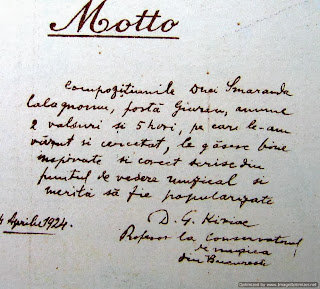 Motto
Compozițiunile Dnei Smaranda
fostă Giurcu, anume
2 valsuri si 5 hori, pe cari le-am
văzut si cercetat, le găsesc bine
inspirate si corect scrise din
punctul de vedere muzical si
merită să fie popularizate
Aprilie 1924.
D. G. Kiriac
Profesor la Conservatorul
de muzica
din Bucuresti
Optimized by www.ImageOptimizer.net